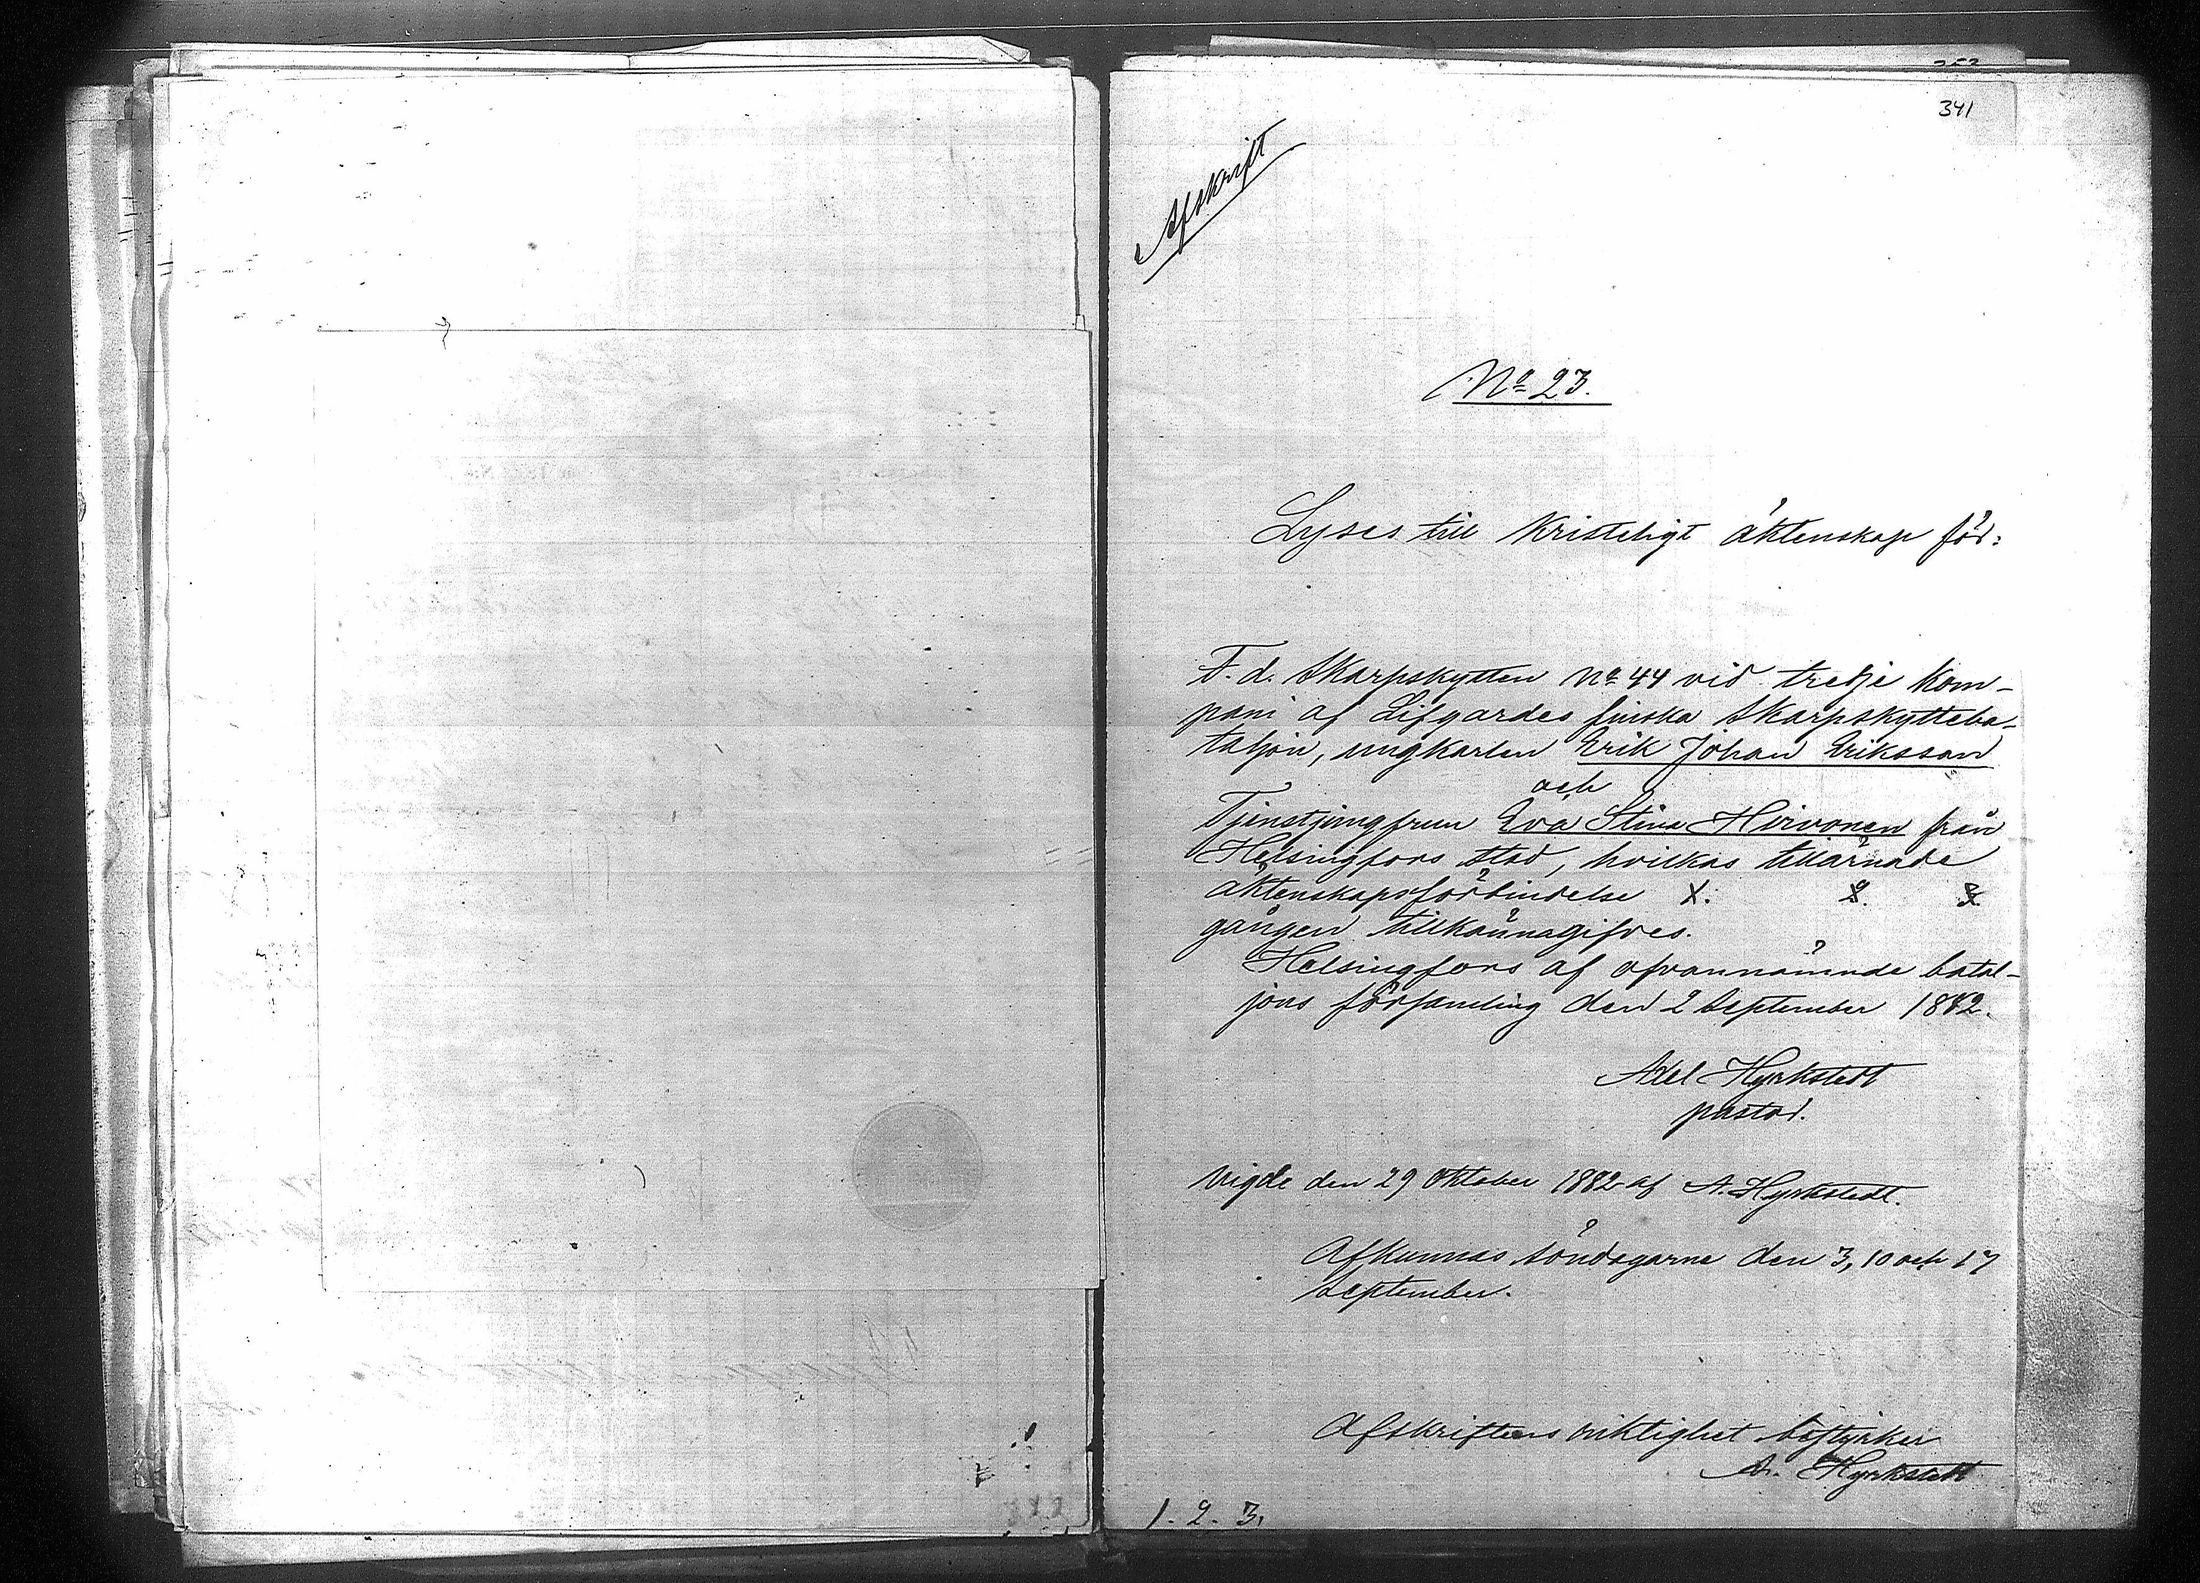 341
Afskrift
No 23.
Lyses till kristeligt äktenskap för:
F. d. Skarpskytten No 44 vid tredje kom-
pani af Lifgardes finska Skarpskytteba-
taljon, ungkarlen Erik Johan Eriksson
och
Tjenstjungfrun Eva Stina Hirvonen från
Helsingfors stad, hvilkas tillärnade
äktenskapsförbindelse 1. 2. 3
gången tillkännagifves.
Helsingfors af ofvannämnde batal-
jons församling den 2 September 1882.
Axel Hyrkstedt
pastor.
Vigde den 29 Oktober 1882 af A. Hyrkstedt.
Afkunnas söndagarne den 3, 10 och 17
September.
Afskriftens riktighet bestyrker
A. Hyrkstedt
1. 2. 3.